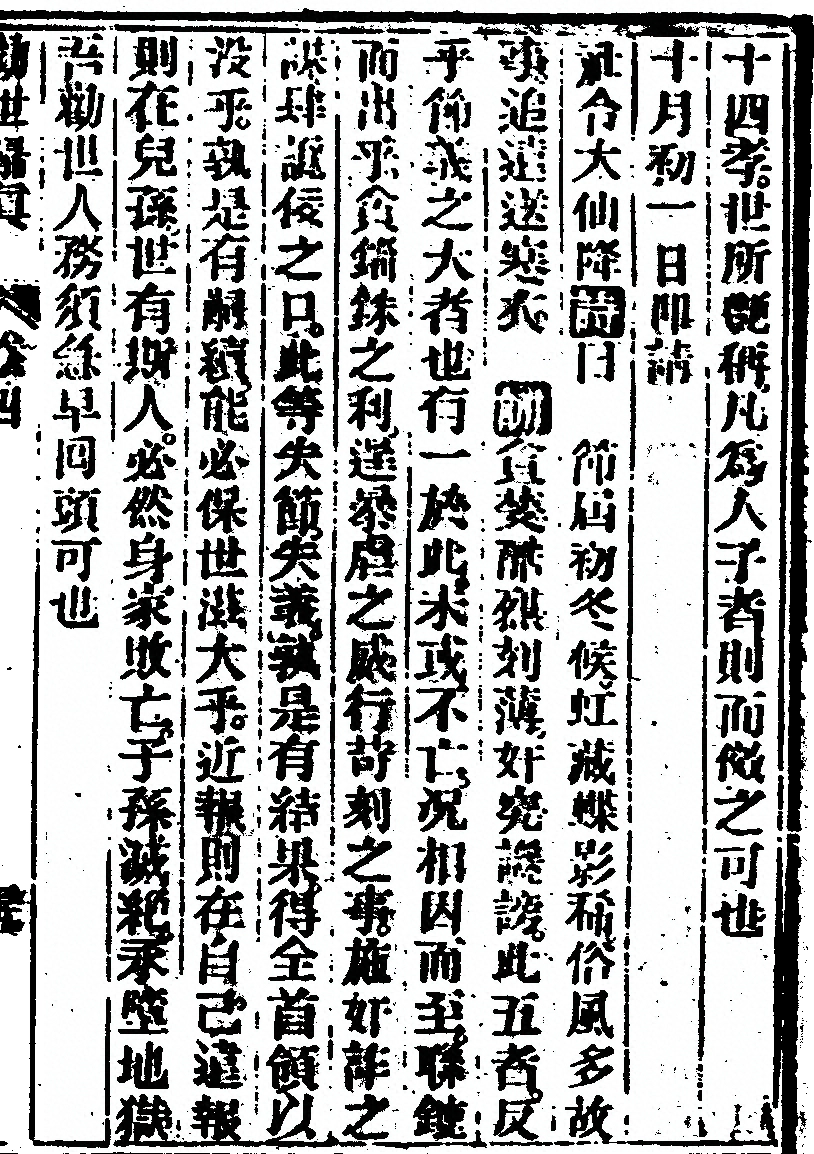 十四孝世所艷稱凡爲人子者則而傚之可也
十月初一日叩請
乩令大仙降壇曰　節屆初冬候虹藏蝶影稀俗風多故
事追遠送寒衣　貪婪酷烈刻薄奸究讒謗此五者反
乎節義之大者也有一於此未或不亡况相因而至聯鏈
而出乎貪錙銖之利逞暴虐之威行苛刻之事施奸詐之
謀肆誣佞之口此等失節失義孰是有結果得全首領以
没乎孰是有嗣續能必保世滋大乎近報則在自己遠報
則在兒孫世有斯人必然身家敗亡子孫滅絕永墮地獄
吾勸世人務須急早回頭可也
勸世歸眞　卷四